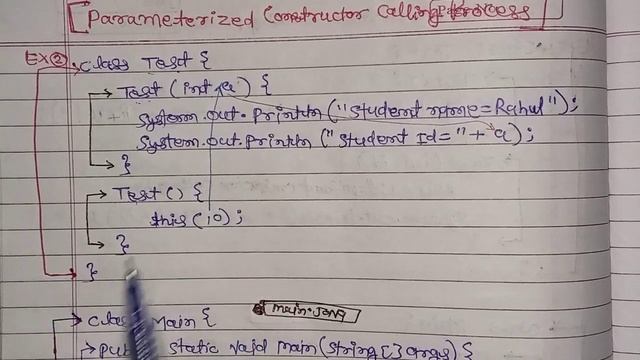 Parameterized Constructor Calling Process
EX② class Test {
Test (int a) {
System.out.println("student name=Rahul");
System.out.println("student Id="+ a);
}
Test() {
this(10);
}
}
class Main {
main.java
static void main(String[] args) {